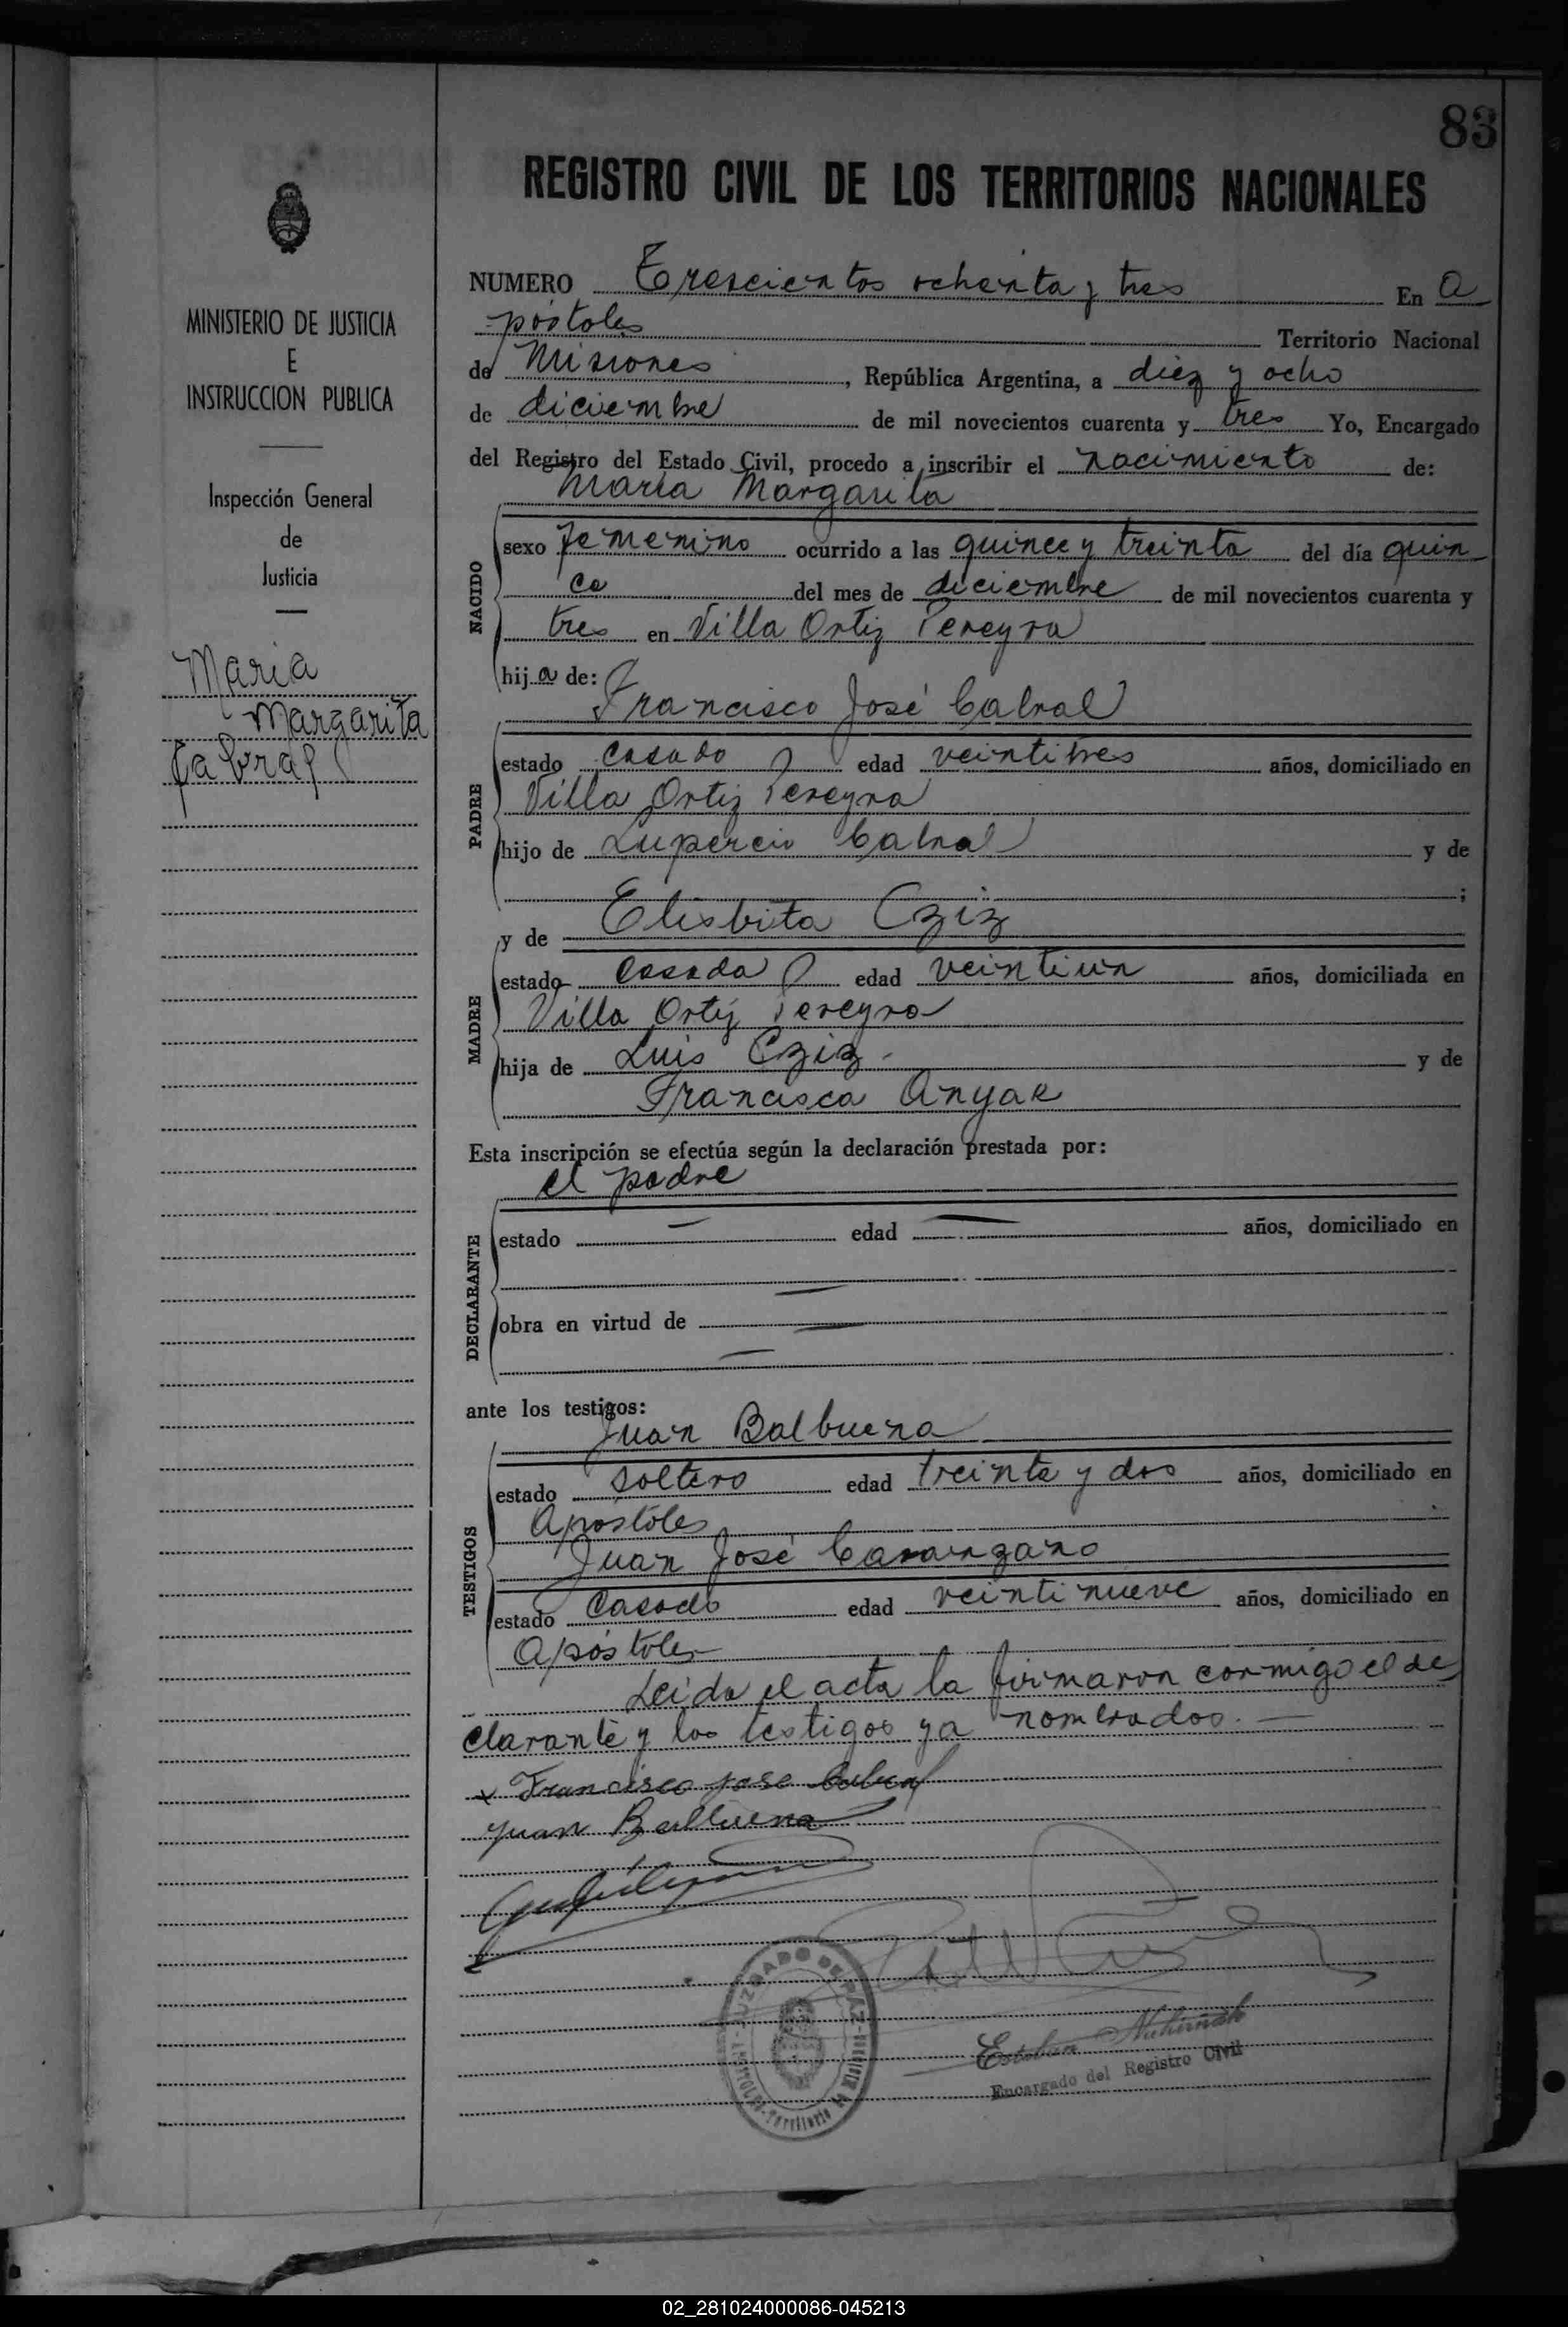 83
REGISTRO CIVIL DE LOS TERRITORIOS NACIONALES
MINISTERIO DE JUSTICIA
E
INSTRUCCION PUBLICA
Inspección General
de
Justicia
Maria
Margarita
Cabral
NUMERO Trescientos ochenta y tres En A
=póstoles Territorio Nacional
de Misiones, República Argentina, a diez y ocho
de diciembre de mil novecientos cuarenta y tres Yo, Encargado
del Registro del Estado Civil, procedo a inscribir el nacimiento de:
María Margarita
NACIDO
sexo femenino ocurrido a las quince y treinta del día quin
ce del mes de diciembre de mil novecientos cuarenta y
tres en Villa Ortiz Pereyra
hija de:
Francisco José Cabral
PADRE
estado casado edad veintitres años, domiciliado en
Villa Ortiz Pereyra
hijo de Lupercio Cabral y de
;
y de Elisbita Cziz
MADRE
estado casada edad veintiun años, domiciliada en
Villa Ortiz Pereyra
hija de Luis Cziz. y de
Francisca Anyak
Esta inscripción se efectúa según la declaración prestada por:
el padre
DECLARANTE
estado — edad — años, domiciliado en
—
obra en virtud de —
—
ante los testigos:
Juan Balbuena
TESTIGOS
estado soltero edad treinta y dos años, domiciliado en
Apostóles
Juan José
estado Casado edad veintinueve años, domiciliado en
Apóstoles
Leida el acta la firmaron conmigo el de
clarante y los testigos ya nombrados. —
x Francisco jose Cabral
Juan Balbuena
JUZGADO DE PAZ
Territorio de
Esteban
Encargado del Registro Civil
02_281024000086-045213